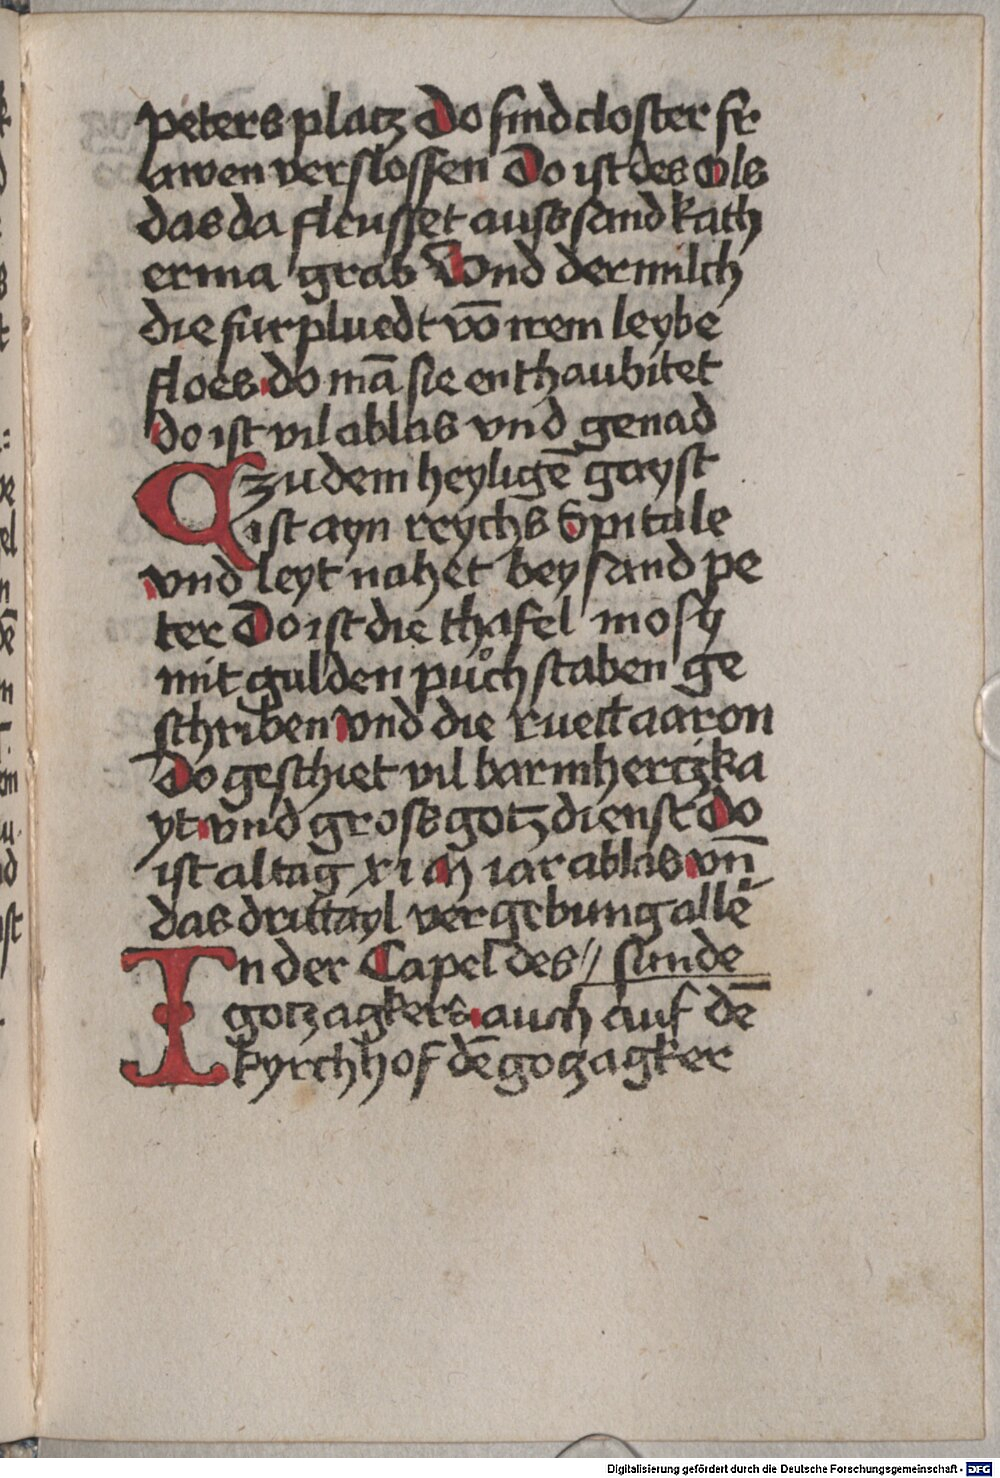 peters platz Do sind closter fr
awen verslossen Do ist des Ols
das da fleusset auss sand kath
erina grab Vnd der milch
die fur pluedt vō irem leybe
floes do mā sie enthaubitet
do ist vil ablas vnd genad
zu dem heyligē gayst
ist ayn reychs Spitale
vnd leyt nahet bey sand pe
ter Do ist die thafel mosy
mit gulden půchstaben ge
schriben vnd die ruett aaron
Do geschiet vil barmhertzka
yt vnd gross gotzdienst Do
ist altag xi M iar ablas vn̄
das drittayl vergebung allē
In der Capel des // sunde
gotzagkers auch auf dē
kyrchhof dē gotzagker
Digitalisierung gefördert durch die Deutsche Forschungsgemeinschaft - DFG